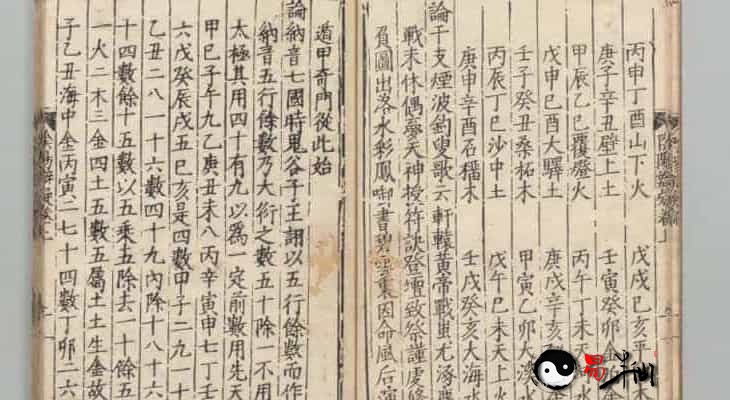 丙申丁酉山下火 戊戌己亥平木
庚子辛丑壁上土 壬寅癸卯金
甲辰乙巳覆燈火 丙午丁未天
戊申己酉大驛土 庚戌辛亥
壬子癸丑桑柘木 甲寅乙卯大溪水
丙辰丁巳沙中土 戊午己未天上火
庚申辛酉石榴木 壬戌癸亥大海水
論干支煙波釣叟歌云軒轅黃帝戰蚩尤涿鹿
戰未休偶夢天神授符訣登壇致祭謹虔修
負圖出洛水彩鳳啣書碧雲裏因命風后演
遁甲奇門從此始
論納音七國時鬼谷子王詡以五行餘數而作
納音五行餘數乃大衍之數五十除一不用
太極其用四十有九以為一定前數用先天
甲己子午九乙庚丑未八丙辛寅申七丁壬
六戊癸辰戌五巳亥是四數甲子二九一十
乙丑二八一十六數四十九內除十八十六
十四數餘十五數以五乘五除去一十餘五
一火二木三金四土五數五屬土土生金故
子乙丑海中金丙寅二七十四數丁卯二六